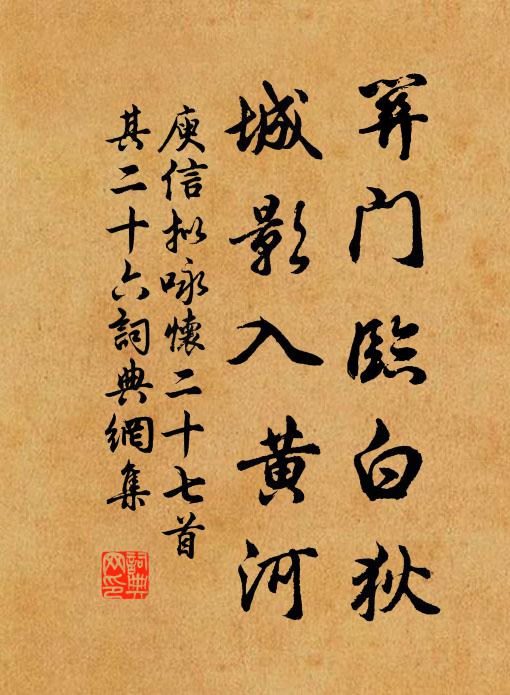 关门臨白狄
城影入黄河
庾信拟咏懷二十七首
其二十六詞典網集
詞典网印